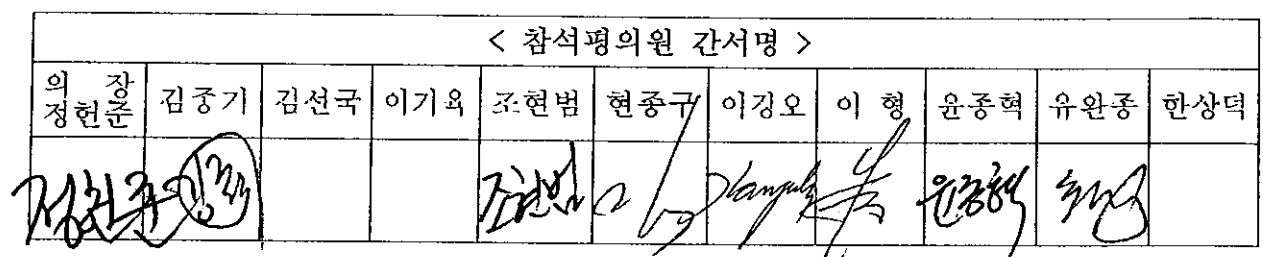 < 참석평의원 간서명 >
의 장 정헌준 김종기 김선국 이기욱 조현범 현종구 이경오 이 형 윤종혁 유완종 한상덕
정헌준 조현범 윤종혁